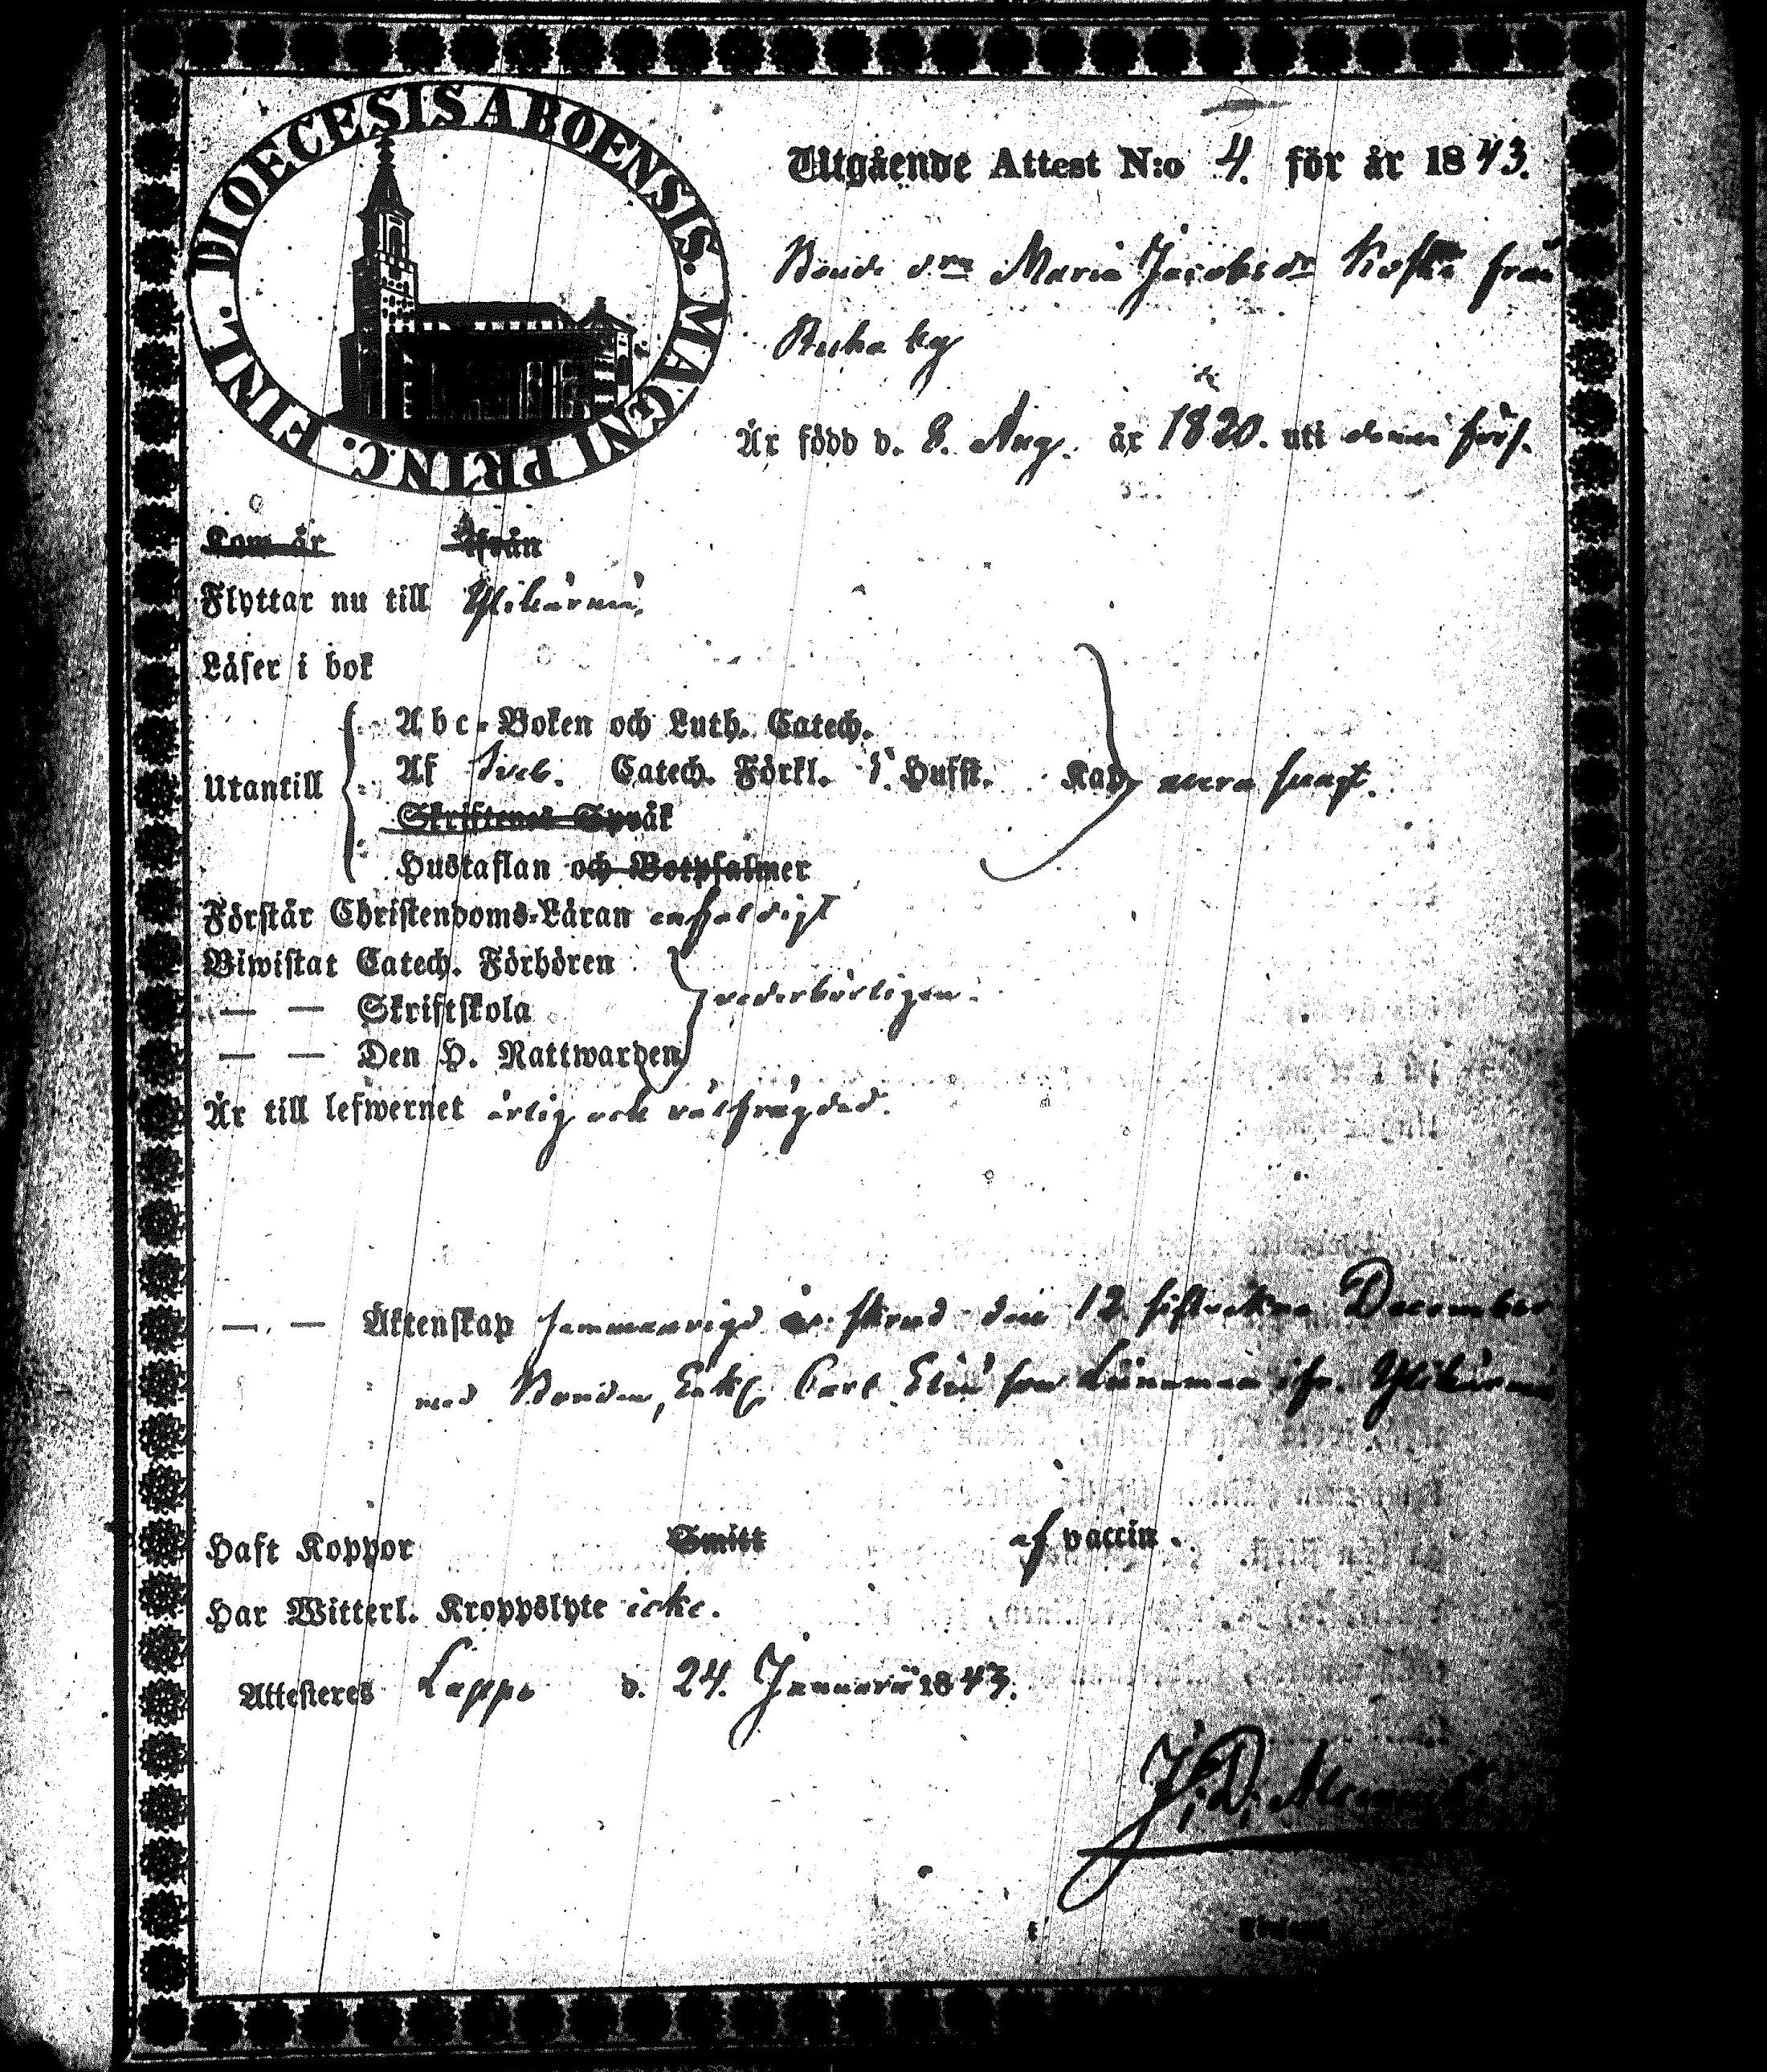 DIOECESIS ABOENSIS. MAGNI PRINC. FINL.
Utgående Attest N:o 4. för år 1843.
Bonde d:n Maria Jacobsdr från
Ruha by
Är född d. 8. Aug. år 1820. uti denna förs.
Kom år Ifrån
Flyttar nu till Ylihärmä.
Läser i bok
Abc-Boken och Luth. Catech.
Utantill Af Sveb. Catech. Förkl. Hufst. Kap
Skriftenes Språk
Hustaflan och Botpsalmer
Förstår Christendoms-Läran enfaldigt
Biwistat Catech. Förhören
— — Skriftskola vederbörligen.
— — Den H. Nattwarden
Är till lefwernet ärlig och välfrägdad.
— — Äktenskap den 12 December
med Bonden, Enkl. Carl Ylihärmä
Haft Koppor Smitt af vaccin.
Har Witterl. Kroppslyte icke.
Attesteres Lappo d. 24. Januarii 1843.
J. D.